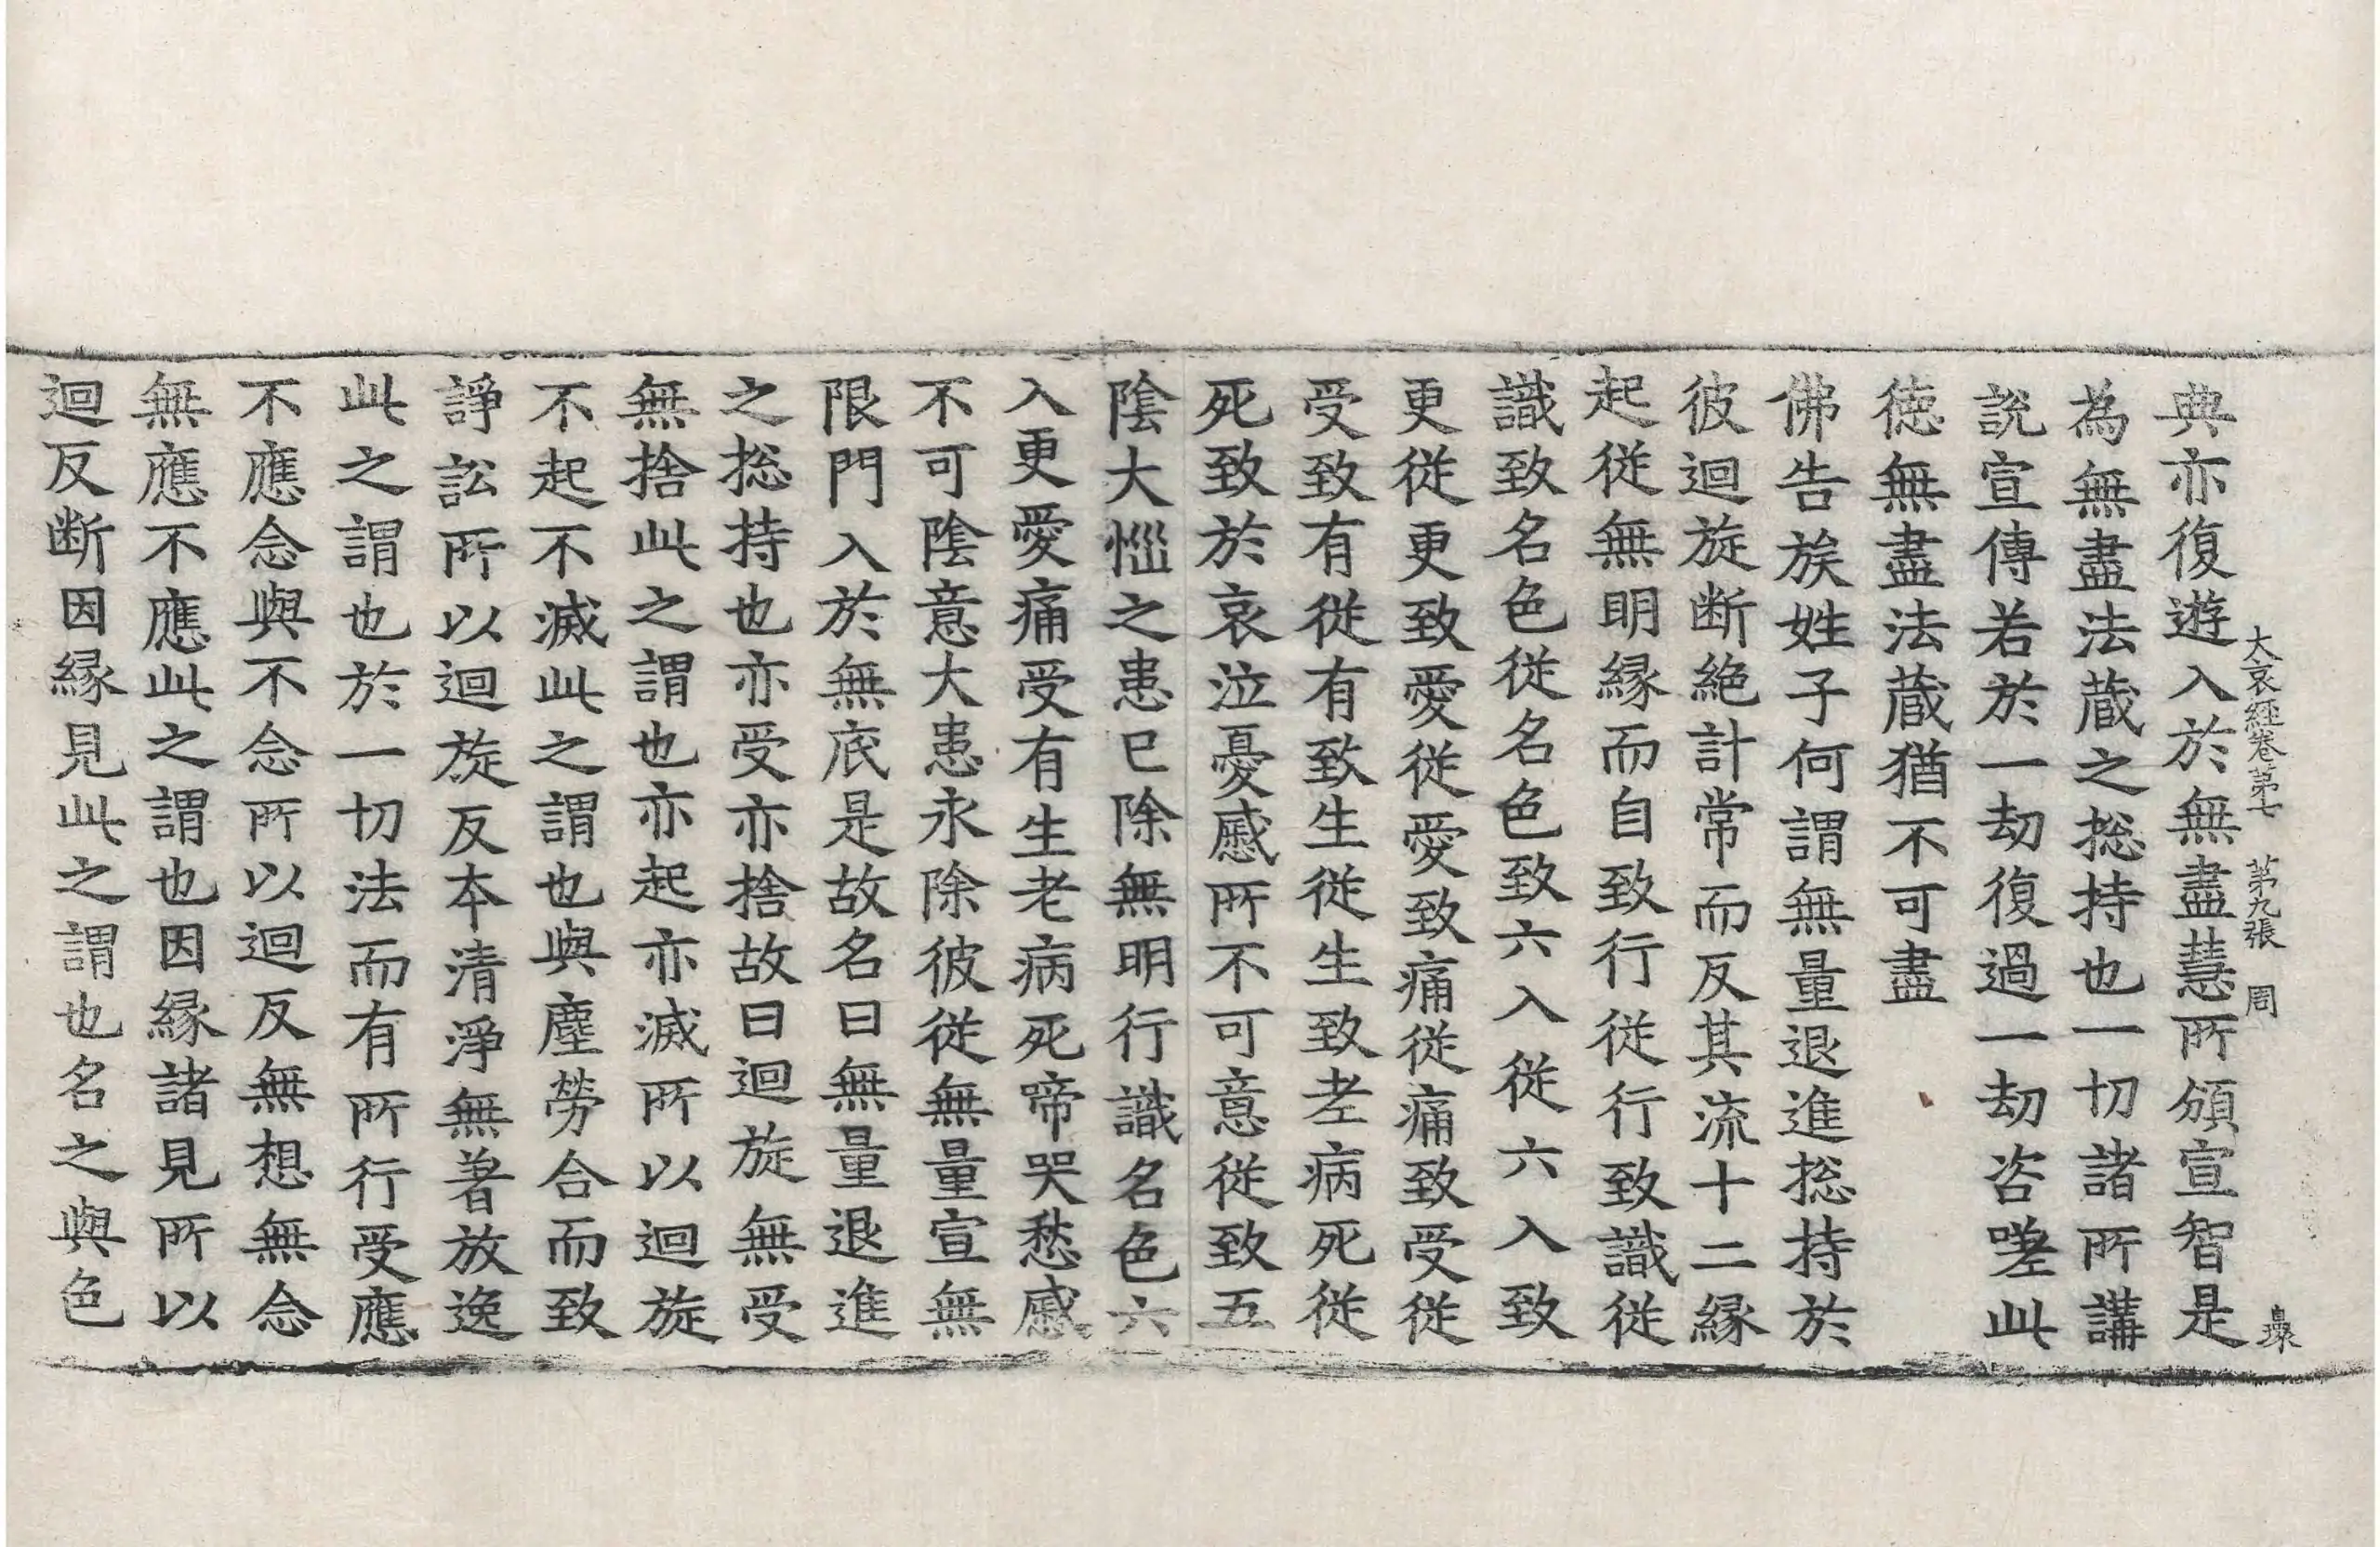 大哀經卷苐七　苐九張　周
典亦復遊入於無盡慧所頒宣智是
為無盡法蔵之捴持也一切諸所講
說宣傳若於一劫復過一劫咨嗟此
徳無盡法蔵猶不可盡
佛告族姓子何謂無量退進捴持於
彼迴旋断絶計常而反其流十二縁
起従無明縁而自致行従行致識従
識致名色従名色致六入従六入致
更従更致愛従愛致痛従痛致受従
受致有従有致生従生致老病死従
死致於哀泣憂慼所不可意従致五
陰大惱之患已除無明行識名色六
入更愛痛受有生老病死啼哭愁慼
不可陰意大患永除彼従無量宣無
限門入於無底是故名曰無量退進
之捴持也亦受亦捨故曰迴旋無受
無捨此之謂也亦起亦滅所以迴旋
不起不滅此之謂也與塵勞合而致
諍訟所以迴旋反本清淨無著放逸
此之謂也於一切法而有所行受應
不應念與不念所以迴反無想無念
無應不應此之謂也因縁諸見所以
迴反断因縁見此之謂也名之與色